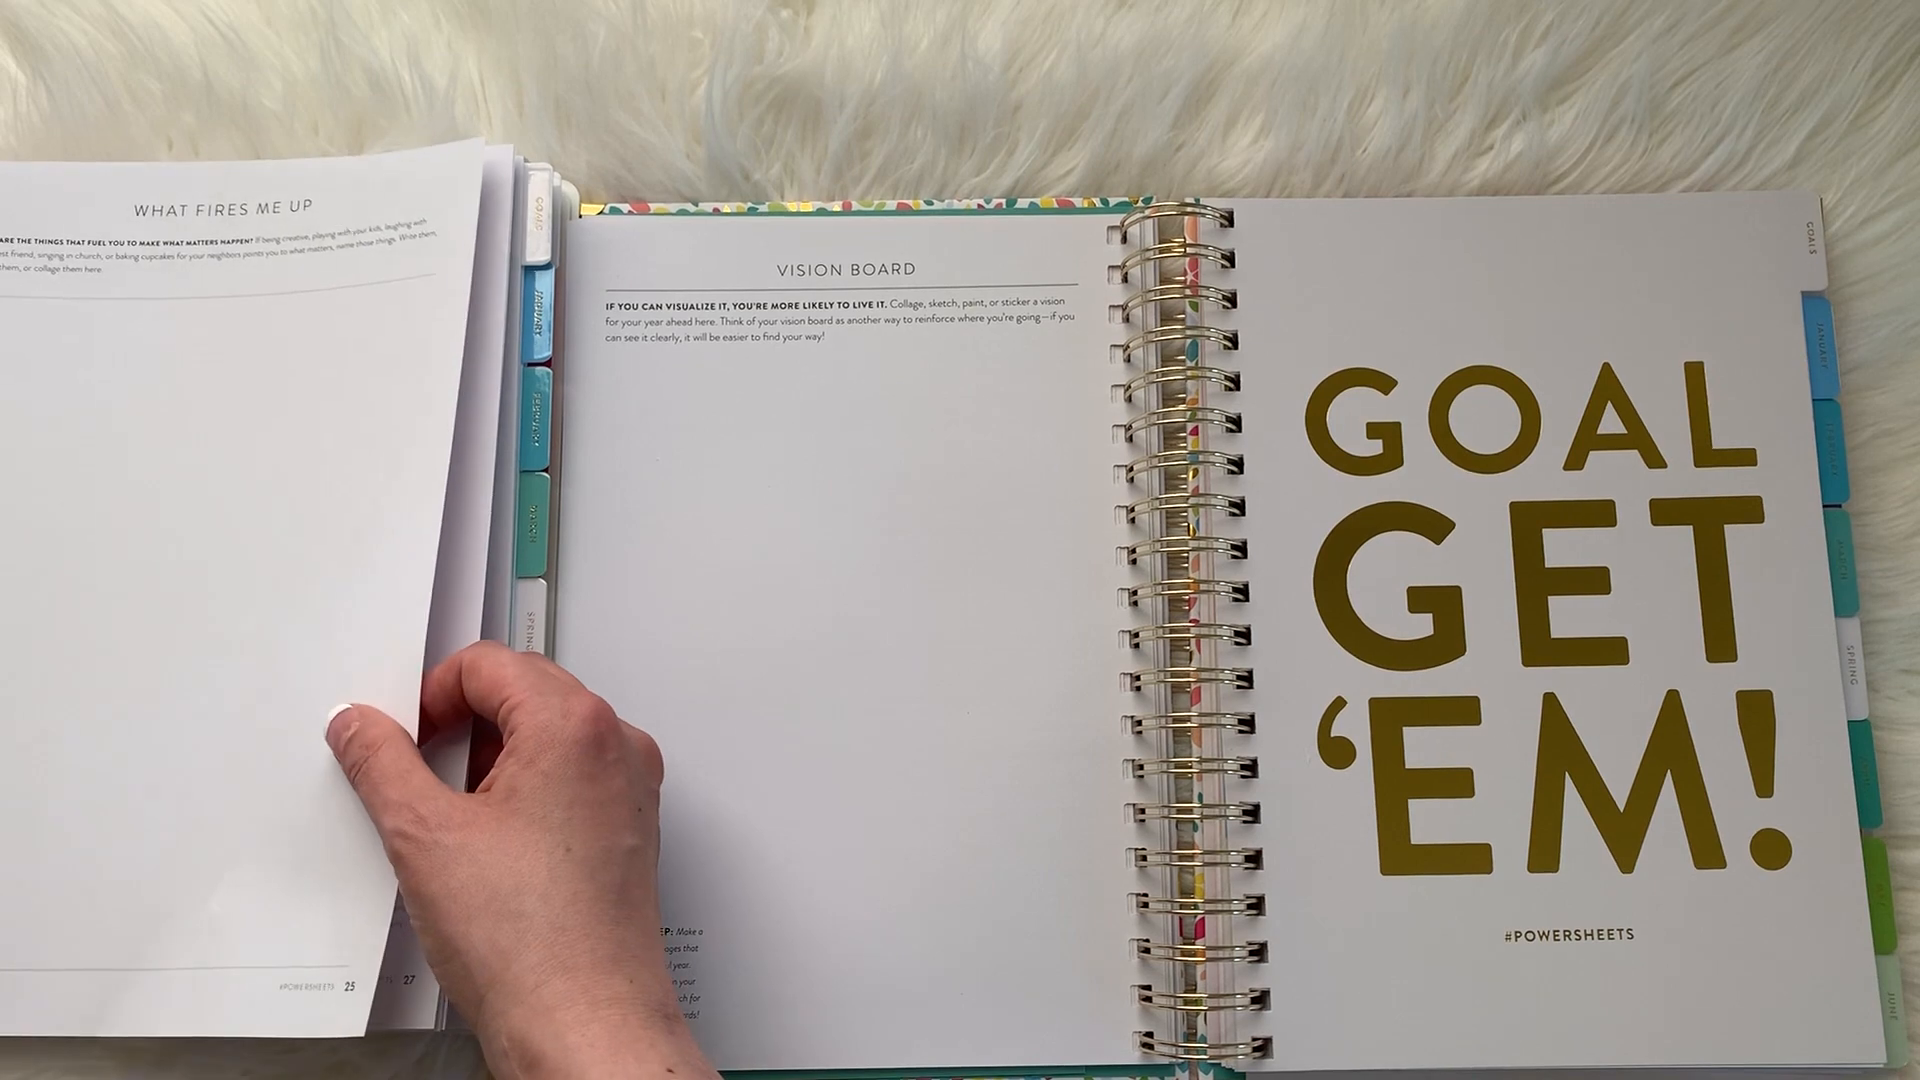 WHAT FIRES ME UP
ARE THE THINGS THAT FUEL YOU TO MAKE WHAT MATTERS HAPPEN? If being creative, playing with your kids, laughing with
st friend, singing in church, or baking cupcakes for your neighbors points you to what matters, name those things. Write them,
them, or collage them here.
#POWERSHEETS 25
27
GOALS
JANUARY
FEBRUARY
MARCH
SPRING
VISION BOARD
IF YOU CAN VISUALIZE IT, YOU'RE MORE LIKELY TO LIVE IT. Collage, sketch, paint, or sticker a vision
for your year ahead here. Think of your vision board as another way to reinforce where you're going—if you
can see it clearly, it will be easier to find your way!
EP: Make a
ages that
year.
n your
ch for
ards!
GOAL
GET
‘EM!
#POWERSHEETS
GOALS
JANUARY
FEBRUARY
MARCH
SPRING
JUNE